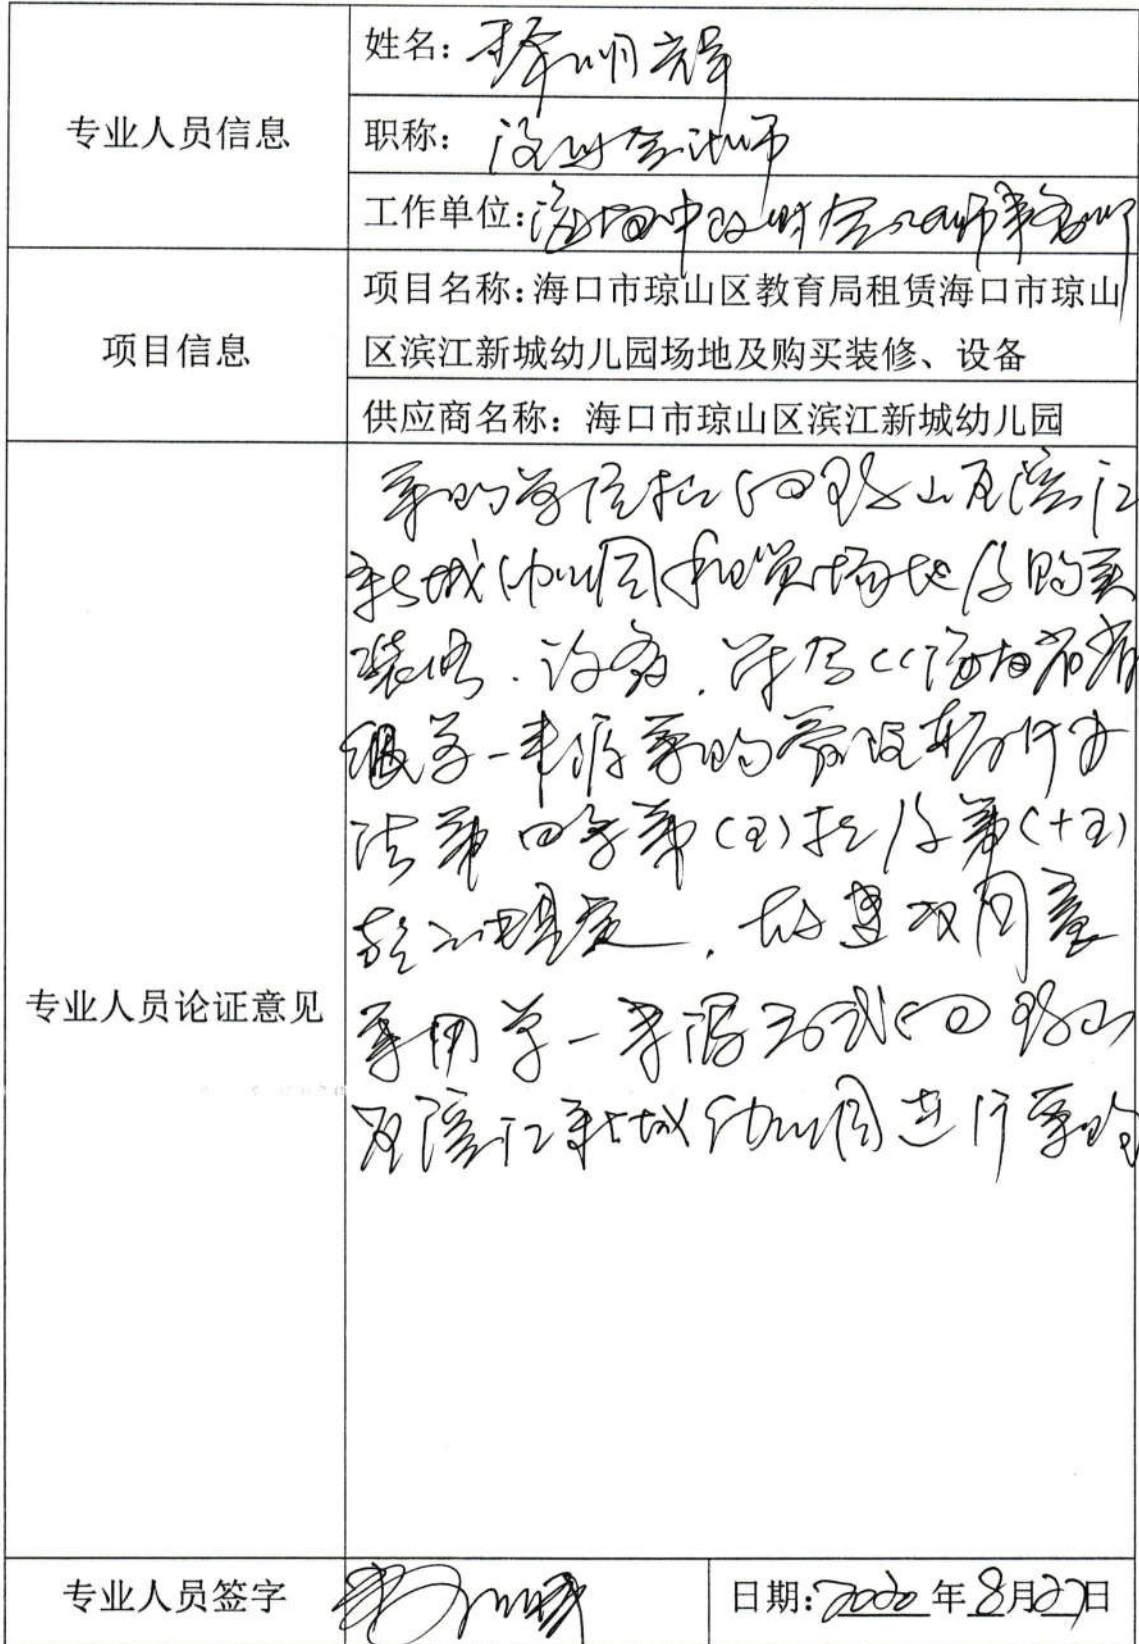 专业人员信息
姓名：
职称：会计师
工作单位：海南中财会师事务所
项目信息
项目名称：海口市琼山区教育局租赁海口市琼山
区滨江新城幼儿园场地及购买装修、设备
供应商名称：海口市琼山区滨江新城幼儿园
专业人员论证意见
采购单位拟向琼山区滨江
新城幼儿园租赁场地及购买
装修、设备，符合《海南省省
级单一来源采购管理暂行办
法第四条第(五)款及第(十五)
款之规定，故建议同意
采用单一来源方式向琼山
区滨江新城幼儿园进行采购
专业人员签字
日期：2020年8月27日